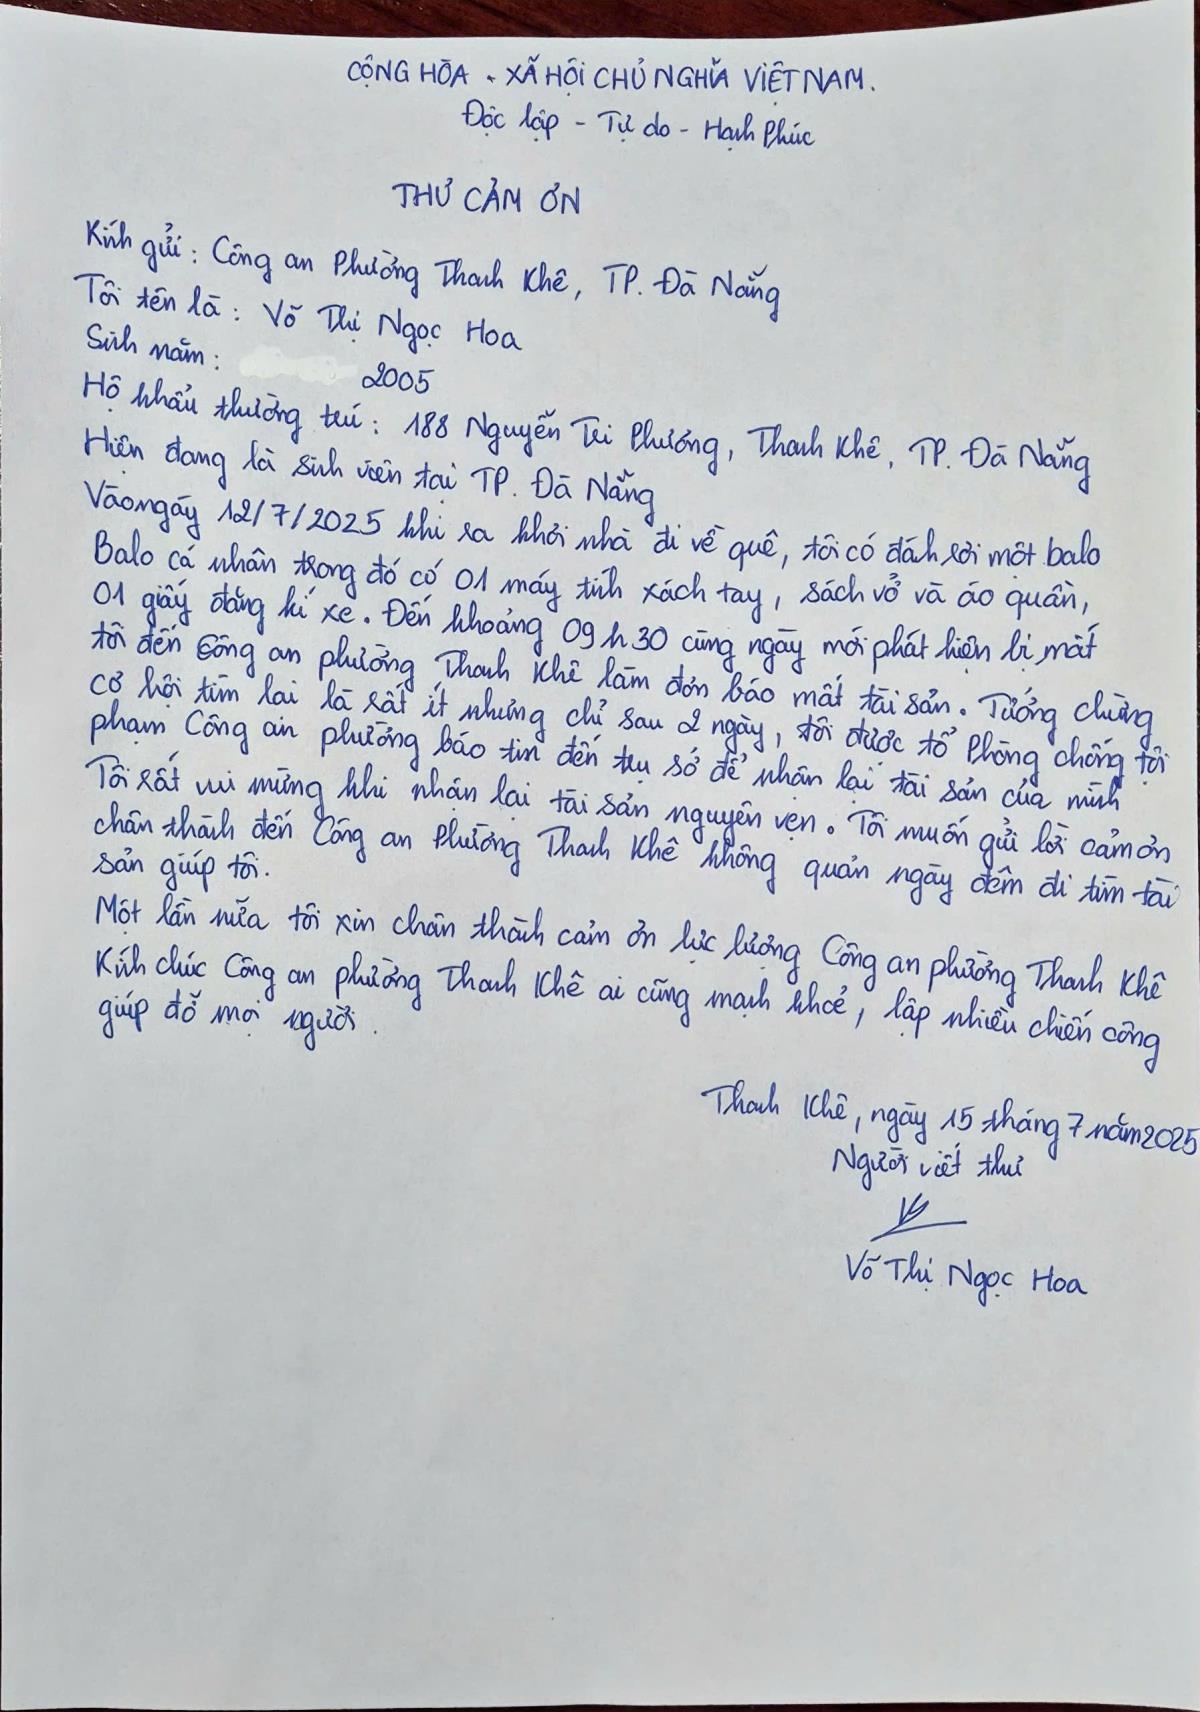 CỘNG HÒA - XÃ HỘI CHỦ NGHĨA VIỆT NAM.
Độc lập - Tự do - Hạnh Phúc
THƯ CẢM ƠN
Kính gửi: Công an Phường Thanh Khê, TP. Đà Nẵng
Tôi tên là: Võ Thị Ngọc Hoa
Sinh năm: 2005
Hộ khẩu thường trú: 188 Nguyễn Tri Phương, Thanh Khê, TP. Đà Nẵng
Hiện đang là sinh viên tại TP. Đà Nẵng
Vào ngày 12/7/2025 khi ra khỏi nhà đi về quê, tôi có đánh rơi một balo
Balo cá nhân trong đó có 01 máy tính xách tay, sách vở và áo quần,
01 giấy đăng kí xe. Đến khoảng 09h30 cùng ngày mới phát hiện bị mất
tôi đến Công an phường Thanh Khê làm đơn báo mất tài sản. Tưởng chừng
cơ hội tìm lại là rất ít nhưng chỉ sau 2 ngày, tôi được tổ Phòng chống tội
phạm Công an phường báo tin đến trụ sở để nhận lại tài sản của mình
Tôi rất vui mừng khi nhận lại tài sản nguyên vẹn. Tôi muốn gửi lời cảm ơn
chân thành đến Công an Phường Thanh Khê không quản ngày đêm đi tìm tài
sản giúp tôi.
Một lần nữa tôi xin chân thành cảm ơn lực lượng Công an phường Thanh Khê
Kính chúc Công an phường Thanh Khê ai cũng mạnh khoẻ, lập nhiều chiến công
giúp đỡ mọi người.
Thanh Khê, ngày 15 tháng 7 năm 2025
Người viết thư
Võ Thị Ngọc Hoa